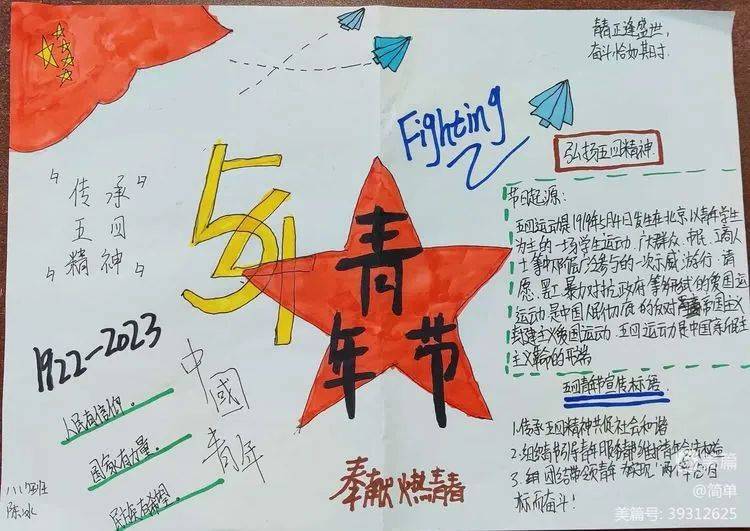 青春正逢盛世，
奋斗恰如其时.
Fighting
弘扬五四精神.
“传承”
五四
“精神”
54
青
年节
1922-2023
中國青年
人民有信仰.
国家有力量.
民族有希望.
节日起源:
五四运动是1919年5月4日发生在北京以青年学生
为主的一场学生运动,广大群众、市民、工商人
士等中下阶层广泛参与的一次示威游行、请
愿、罢工、暴力对抗政府等形式的爱国运
运动,是中国人民彻底的反对帝国主义
封建主义爱国运动.五四运动是中国新民主
主义革命的开端
五四青年节宣传标语
1.传承五四精神共促社会和谐
2.组织引导青年服务青年维护青年合法权益
3.组 团结带领青年为实现“两个百年目
标而奋斗!
奉献燃青春
美篇
@简单
美篇号: 39312625